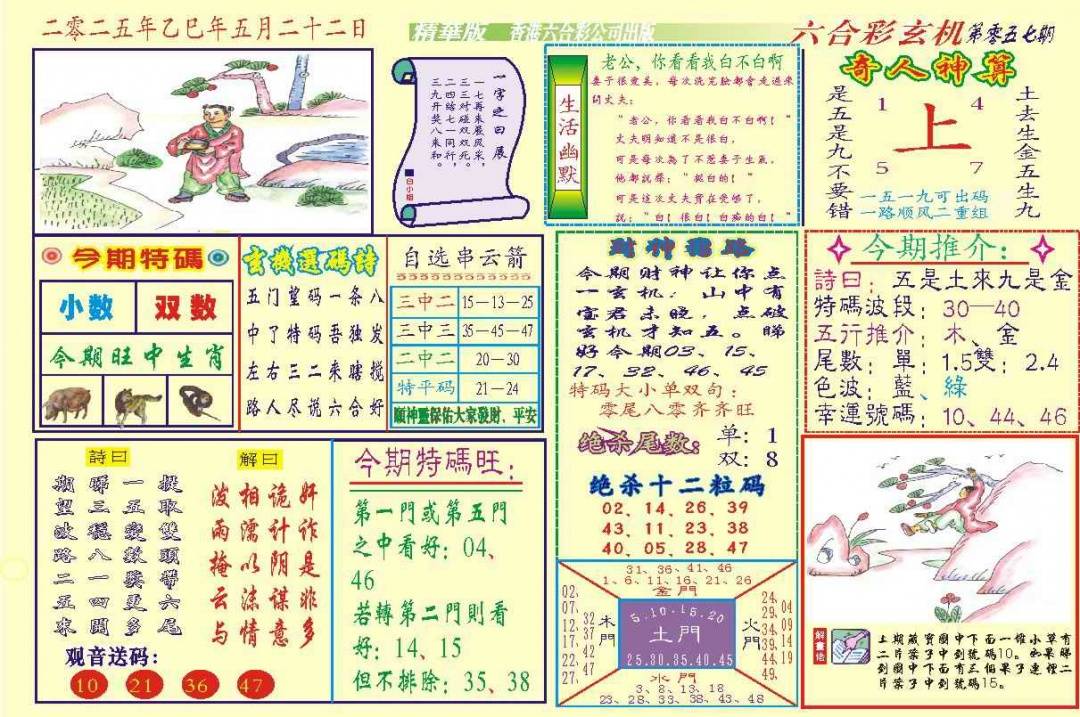 二零二五年乙巳年五月二十二日
精華版 香港六合彩公司出版
六合彩玄机 第零五七期
一字之曰展
一七再来采，
二三對双風
三四碰雙死。
九開七同行，
開奖八一来和
白小姐
生活幽默
老公，你看看我白不白啊
妻子很爱美，每次洗完脸都会走过来
问丈夫：
"老公，你看看我白不白啊！"
丈夫明知道不是很白，
可是每次为了不惹妻子生氣，
他都說聲："挺白的！"
可是这次丈夫實在受够了，
説："白！很白！白痴的白！"
奇人神算
是五是九不要错
1 4
上
5 7
土去生金五生九
一五一九可出码
一路顺风二重组
今期特碼
小数 双数
今期旺中生肖
玄機選碼詩
五门望码一条八
中了特码吾独发
左右三二来瞎搅
路人尽说六合好
自选串云箭
三中二 15—13—25
三中三 35—45—47
二中二 20—30
特平码 21—24
順神靈保佑大家發財、平安
財神
今期财神让你点
一玄机：山中有
宝君未晓，点破
玄机才知五。睇
好今期03、15、
17、32、46、45
特码大小单双句：
零尾八零齐齐旺
绝杀尾数：
单：1
双：8
绝杀十二粒码
02、14、26、39
43、11、23、38
40、05、28、47
今期推介：
詩曰：五是土來九是金
特碼波段：30—40
五行推介：木、金
尾數：單：1.5雙：2.4
色波：藍、綠
幸運號碼：10、44、46
詩曰
期睇一提
望三五取
波穩變雙
路八數頭
二一獎帶
五四更六
來開多尾
解曰
泼相诡奸
雨濡计诈
掩以阴是
云沫谋非
与情意多
观音送码：
10 21 36 47
今期特碼旺：
第一門或第五門
之中看好：04、
46
若轉第二門則看
好：14、15
但不排除：35、38
31、36、41、46
1、6、11、16、21、26
金門
02、07、12、17、22、27、
32 37 42 47
木門
5.10.15.20
土門
25.30.35.40.45
火門
24、29、34、39、44、49、
04 09 14 19
水門
3、8、13、18
23、28、33、38、43、48
解畫佬
上期藏寶圖中下面一堆小草有
二片葉子中到號碼10。如果睇
到圖中下面有三個果子連裡二
片葉子中到號碼15。